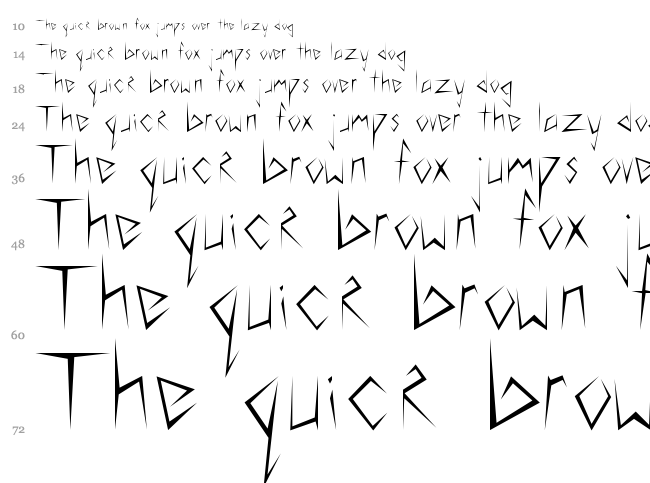 10 The quick brown fox jumps over the lazy dog
14 The quick brown fox jumps over the lazy dog
18 The quick brown fox jumps over the lazy dog
24 The quick brown fox jumps over the lazy do
36 The quick brown fox jumps ove
48 The quick brown fox ju
60 The quick brown f
72 The quick brow